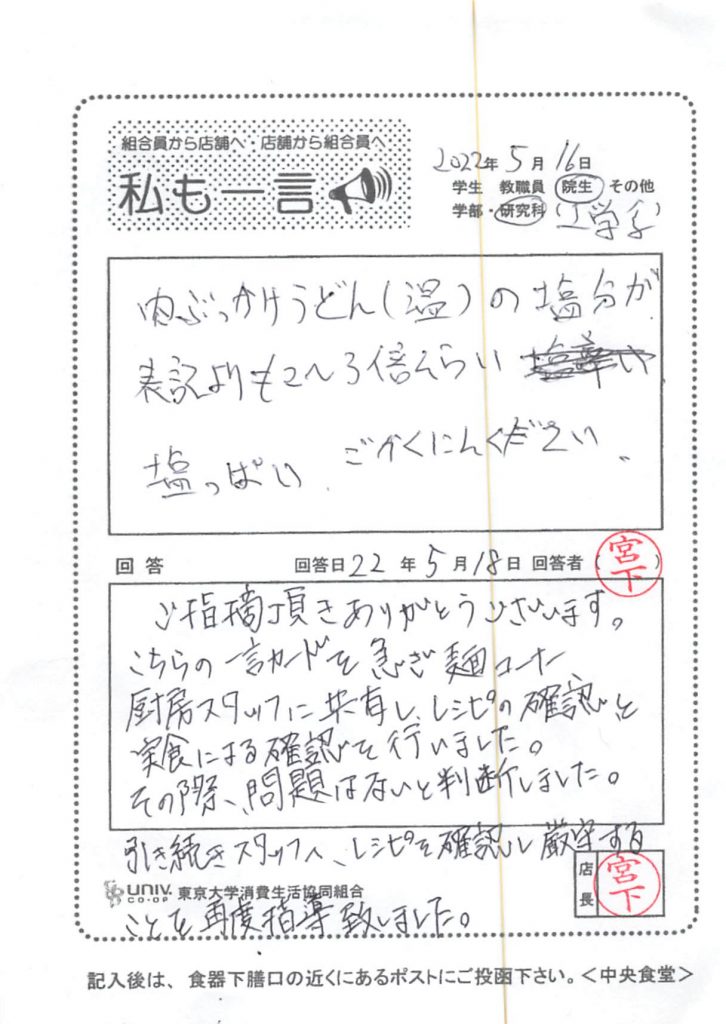 組合員から店舗へ 店舗から組合員へ
私も一言
2022年 5月 16日
学生 教職員 院生 その他
学部・研究科(工学系)
肉ぶっかけうどん(温)の塩分が
表記よりも2〜3倍くらい
塩っぱい、ごかくにんください、
回答 回答日 22年 5月 18日 回答者 (宮下)
ご指摘頂きありがとうございます。
こちらの一言カードを急ぎ麺コーナー
厨房スタッフに共有し、レシピの確認と
実食による確認を行いました。
その際、問題はないと判断しました。
引き続きスタッフへ、レシピを確認し厳守する
店長 宮下
UNIV. CO-OP 東京大学消費生活協同組合
ことを再度指導致しました。
記入後は、食器下膳口の近くにあるポストにご投函下さい。<中央食堂>